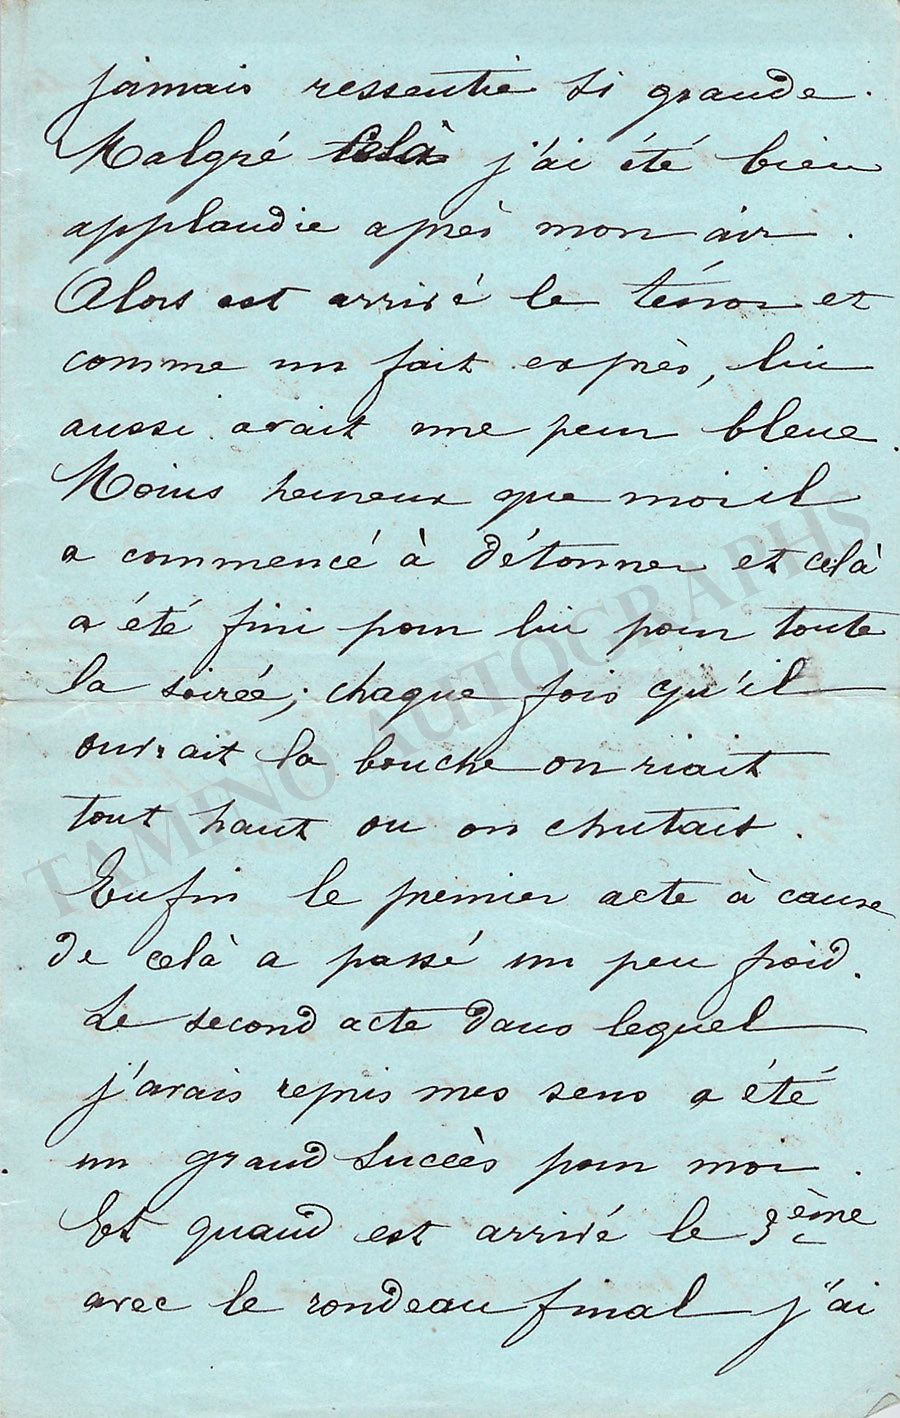 jamais ressentie si grande.
Malgré celà j'ai été bien
applaudie après mon air.
Alors est arrivé le ténor et
comme un fait exprès, lui
aussi avait une peur bleue.
Moins heureux que moi il
a commencé à détonner et celà
a été fini pour lui pour toute
la soirée; chaque fois qu'il
ouvrait la bouche on riait
tout haut ou on chutait.
Enfin le premier acte à cause
de celà a passé un peu froid.
Le second acte dans lequel
j'avais repris mes sens a été
un grand succès pour moi.
Et quand est arrivé le 3ème
avec le rondeau final j'ai
TAMINO AUTOGRAPHS